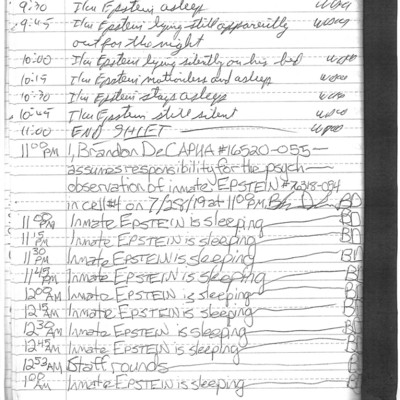 9:30 I/m Epstein asleep
9:45 I/m Epstein lying still apparently
out for the night
10:00 I/m Epstein lying silently on his bed
10:15 I/m Epstein motionless and asleep
10:30 I/m Epstein stays asleep
10:45 I/m Epstein still silent
11:00 END SHIFT
11:00 PM I, Brandon DeCAPUA #16520-055
assumes responsibility for the psych
observation of inmate EPSTEIN #76318-054
in cell #4 on 7/28/19 at 11:00 PM BD
11:00 PM Inmate EPSTEIN is sleeping BD
11:15 PM Inmate EPSTEIN is sleeping BD
11:30 PM Inmate EPSTEIN is sleeping BD
11:45 PM Inmate EPSTEIN is sleeping BD
12:00 AM Inmate EPSTEIN is sleeping BD
12:15 AM Inmate EPSTEIN is sleeping BD
12:30 AM Inmate EPSTEIN is sleeping BD
12:45 AM Inmate EPSTEIN is sleeping BD
12:52 AM Staff rounds BD
1:00 AM Inmate EPSTEIN is sleeping BD